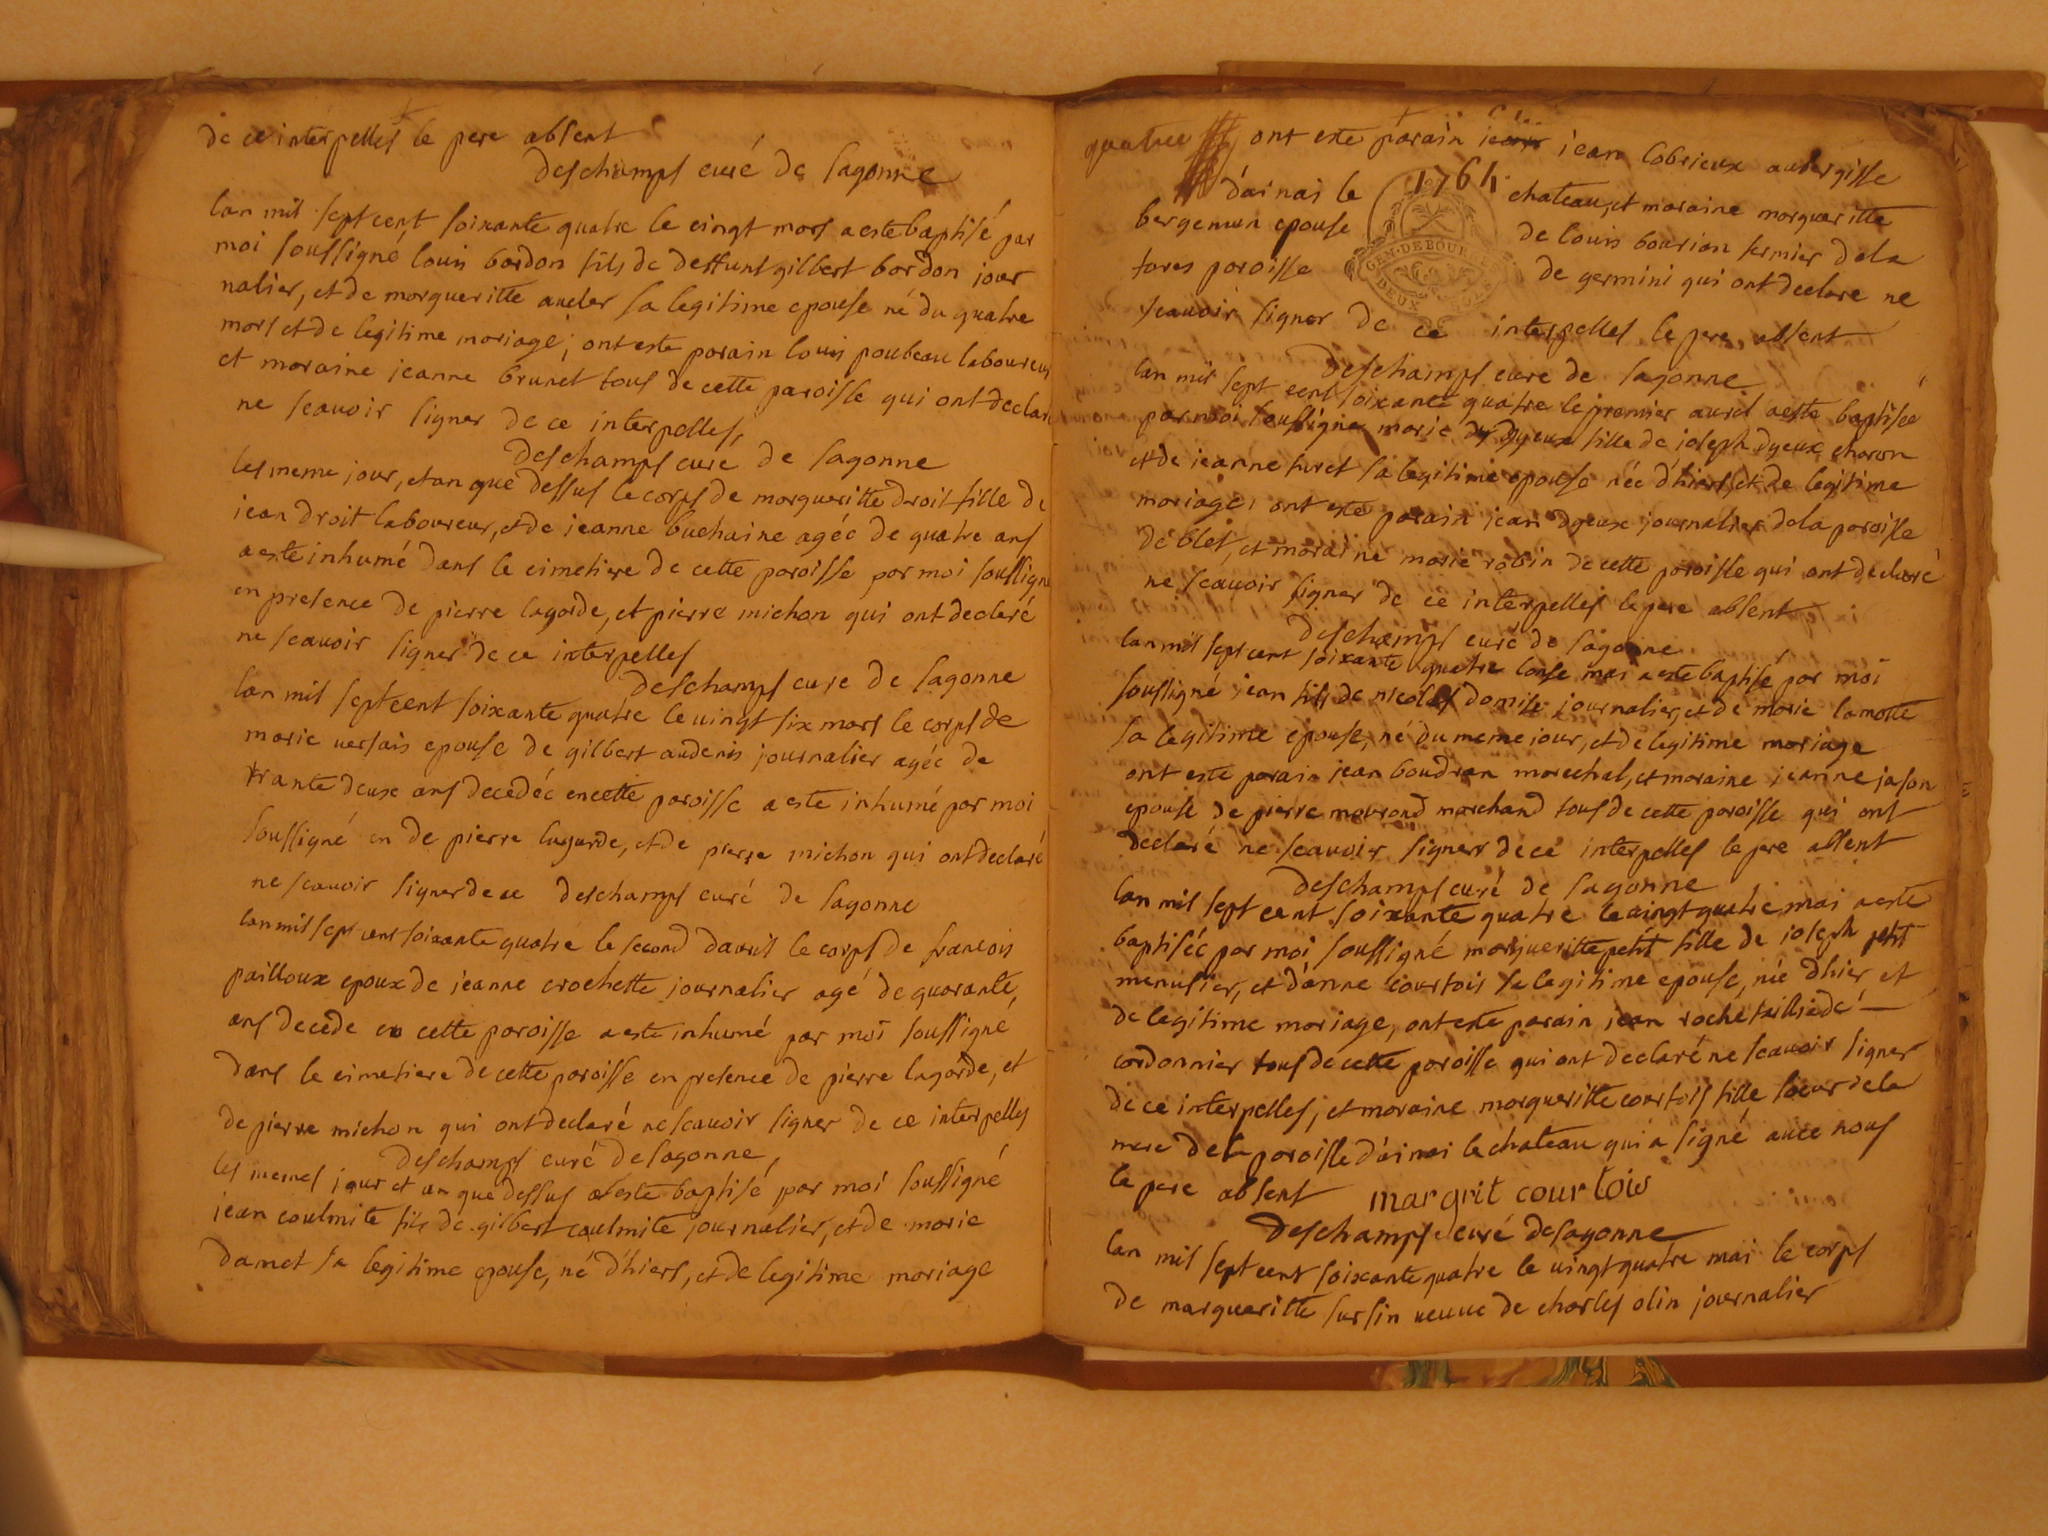 de ce interpelles le pere absent
deschamps curé de sagonne
lan mil sept cent soixante quatre le vingt mars a este baptisé par
moi soussigné louis bordon fils de deffunt gilbert bordon jour
nalier, et de margueritte aucler sa legitime epouse né du quatre
mars et de legitime mariage; ont este parain louis poubeau laboureur
et maraine jeanne brunet tous de cette paroisse qui ont declaré
ne scavoir signer de ce interpelles,
deschamps cure de sagonne
les meme jour, et an que dessus le corps de margueritte droit fille de
jean droit laboureur, et de jeanne buchaine agée de quatre ans
a este inhumé dans le cimetiere de cette paroisse par moi soussigné
en presence de pierre lagarde, et pierre michon qui ont declaré
ne scavoir signer de ce interpelles
deschamps cure de sagonne
lan mil sept cent soixante quatre le vingt six mars le corps de
marie versais epouse de gilbert audenis journalier agée de
trante deux ans decedée en cette paroisse a este inhumé par moi
soussigné en de pierre lagarde, et de pierre michon qui ont declaré
ne scavoir signer de ce deschamps curé de sagonne
lan mil sept cent soixante quatre le second davril le corps de francois
pailloux epoux de jeanne crochette journalier agé de quarante
ans decede en cette paroisse a este inhumé par moi soussigné
dans le cimetiere de cette paroisse en presence de pierre lagarde, et
de pierre michon qui ont declaré ne scavoir signer de ce interpelles
deschamps curé de sagonne,
les memes jour et an que dessus a este baptisé par moi soussigné
jean coulmite fils de gilbert coulmite journalier, et de marie
damet sa legitime epouse, né d'hiers, et de legitime mariage
quatre ont este parain jean labrieux aubergisse
1764
d'ainai le chateau, et maraine margueritte
bergemun epouse de louis bourion fermier de la
fares paroisse de germini qui ont declare ne
GEN. DE BOURGES
DEUX SOLS
scavoir signer de ce interpelles le pere absent
deschamps cure de sagonne
lan mil sept cent soixante quatre le premier avril a este baptisée
par moi soussigné marie dyeux fille de joseph dyeux charon
et de jeanne furet sa legitime epouse née d'hiers, et de legitime
mariage, ont este parain jean dyeux journalier de la paroisse
de blet, et maraine marie robin de cette paroisse qui ont declaré
ne scavoir signer de ce interpelles le pere absent
deschamps curé de sagonne
lan mil sept cent soixante quatre lonse mai a este baptisé par moi
soussigné jean fils de nicolas damise journalier, et de marie lamotte
sa legitime epouse, né du meme jour, et de legitime mariage
ont este parain jean boudran marechal, et maraine jeanne jason
epouse de pierre mourond marchand tous de cette paroisse qui ont
declaré ne scavoir signer de ce interpelles le pere absent
deschamps curé de sagonne
lan mil sept cent soixante quatre le vingt quatre mai a este
baptisée par moi soussigné margueritte petit fille de joseph petit
menusier, et d'anne courtois sa legitime epouse, née d'hier, et
de legitime mariage, ont este parain jean rochetailliade
cordonnier tous de cette paroisse qui ont declaré ne scavoir signer
de ce interpelles, et maraine margueritte courtois fille soeur de la
mere de la paroisse d'ainai le chateau qui a signé avec nous
le pere absent margrit courtois
deschamps curé de sagonne
lan mil sept cent soixante quatre le vingt quatre mai le corps
de margueritte sursin veuve de charles olin journalier